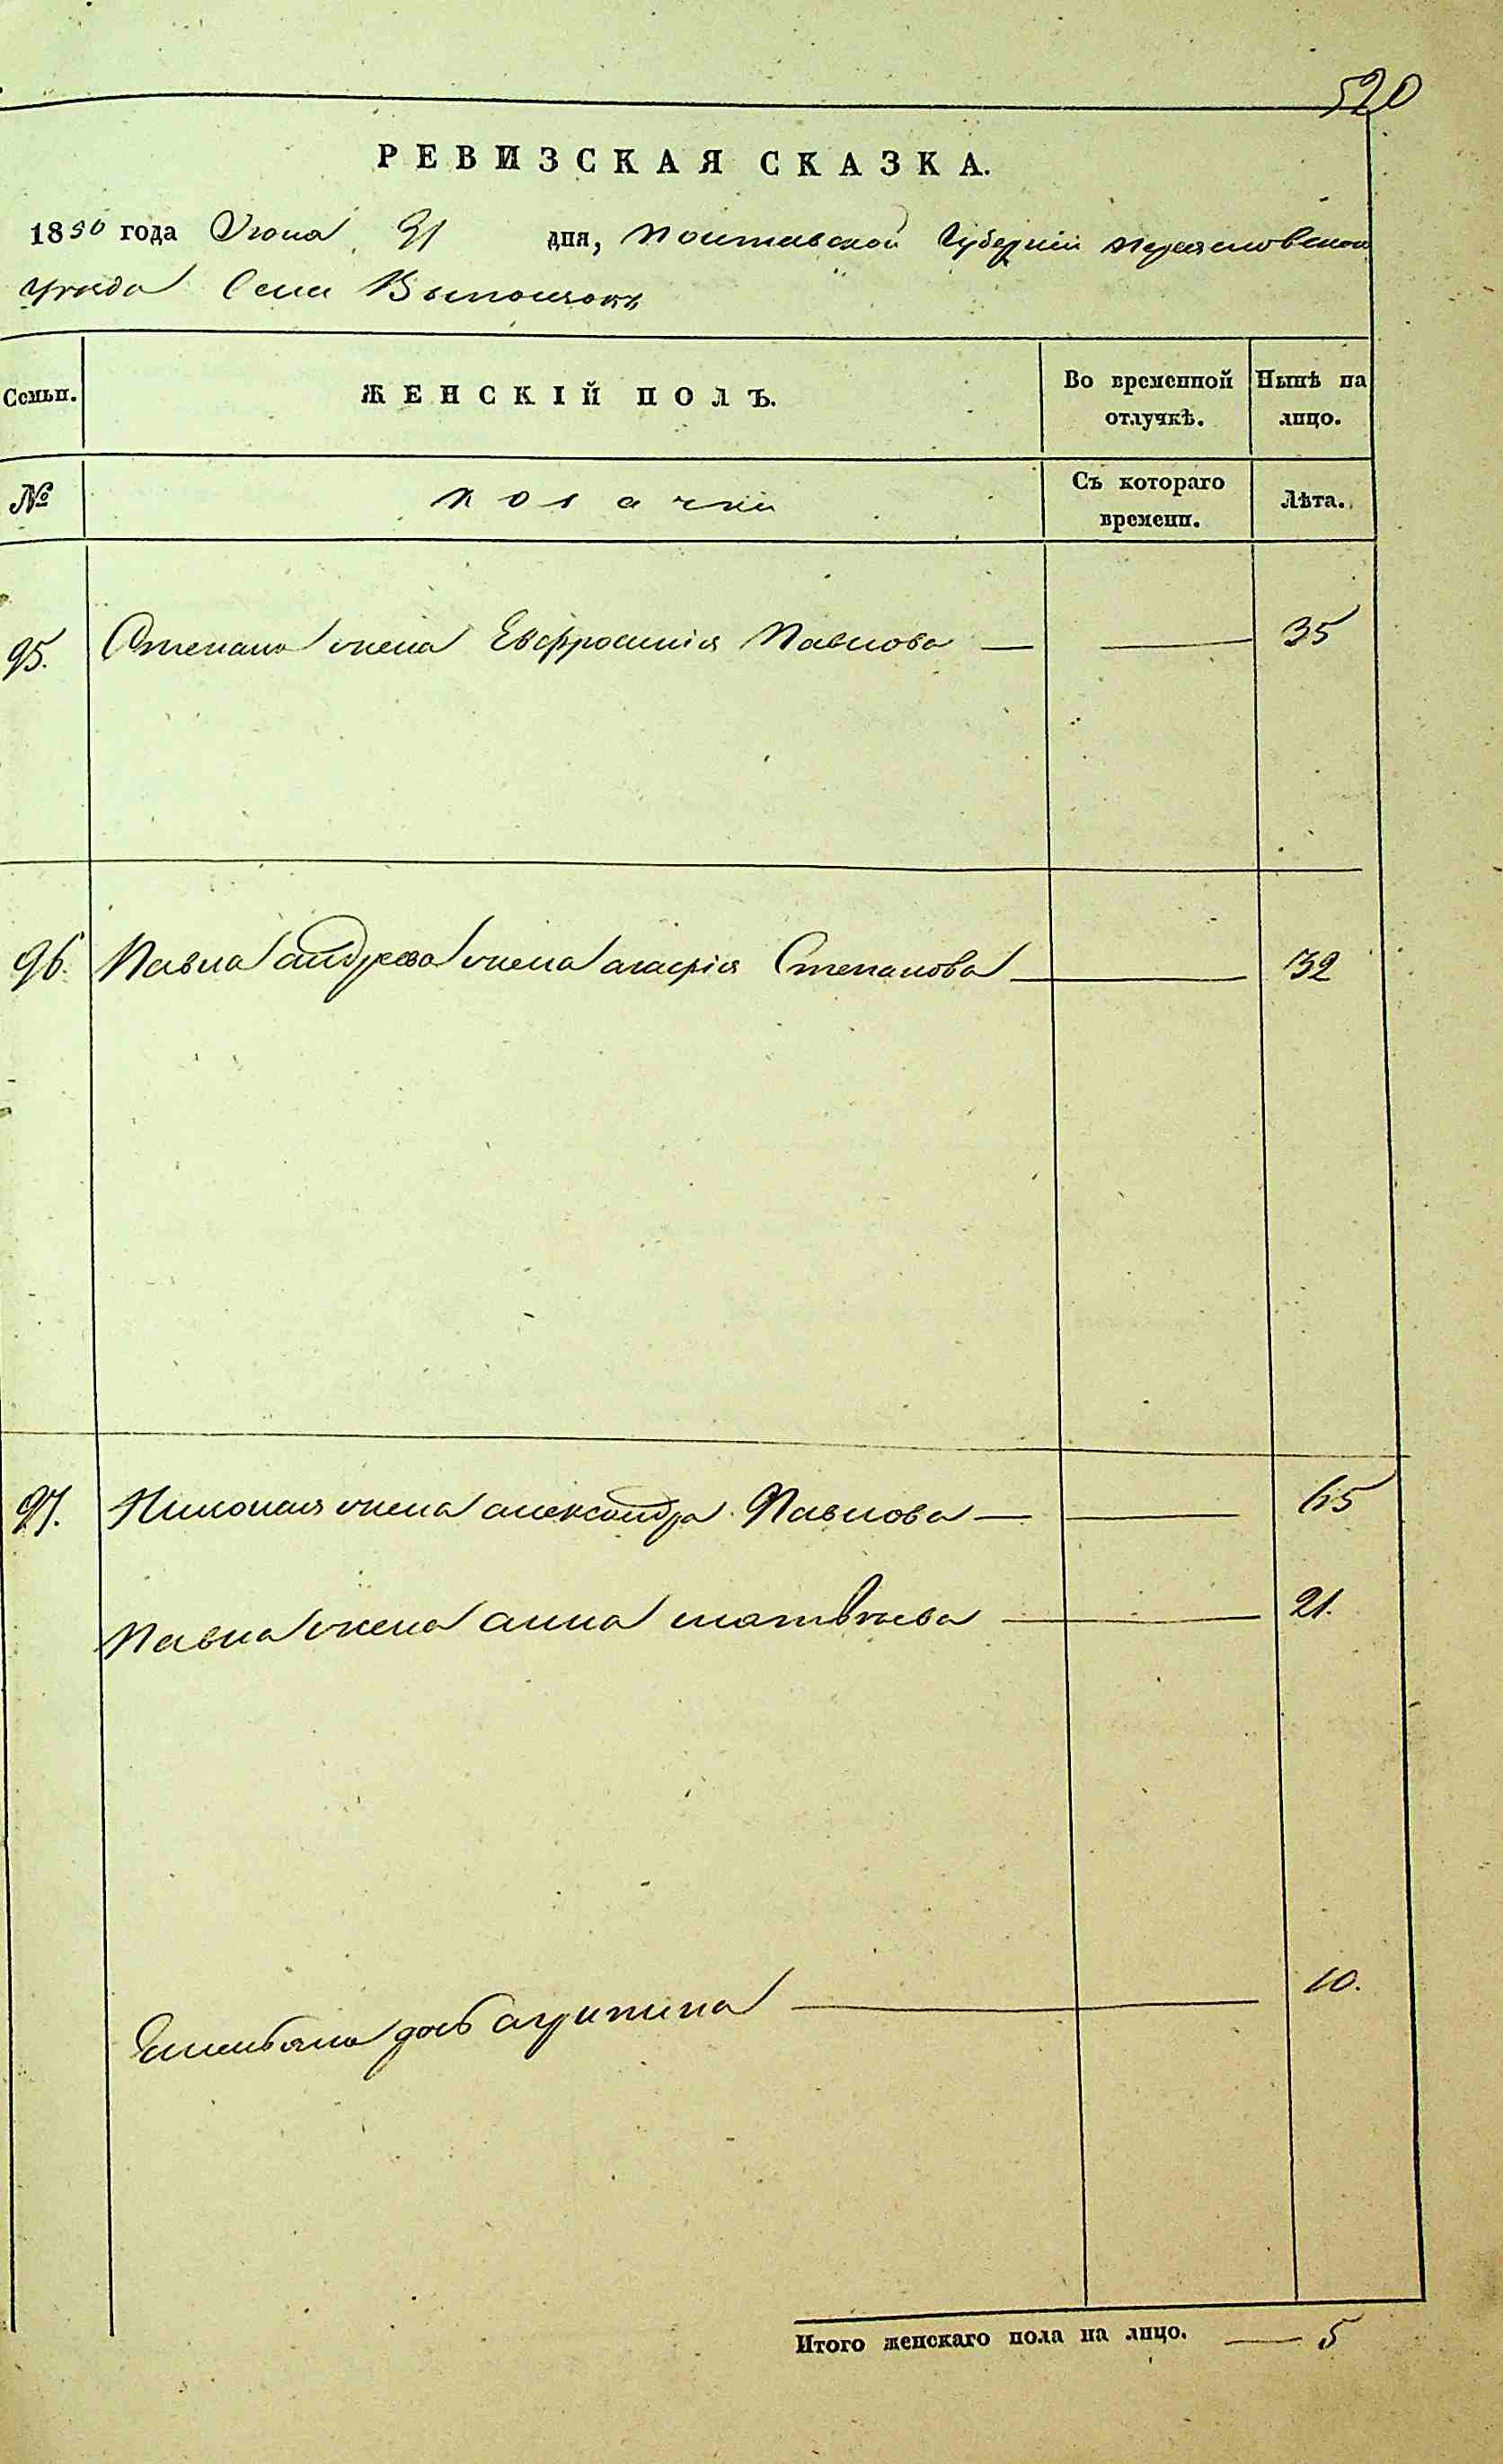 520
РЕВИЗСКАЯ СКАЗКА.
1850 года Июня дня, Полтавской Губерніи Переяславскаго
уезда Села Выползокъ
Семьи. ЖЕНСКІЙ ПОЛЪ. Во временной отлучкѣ. Нынѣ на лицо.
№ козачки Съ котораго времени. Лѣта.
95. Степана жена Евфросинія Павлова — — 35
96. Павла андреева жена агафія Степанова — 32
97. Николая жена александра Павлова — — 65
Павла жена анна матвѣева — 21.
Емельяна дочь агрипина — 10.
Итого женскаго пола на лицо. — 5